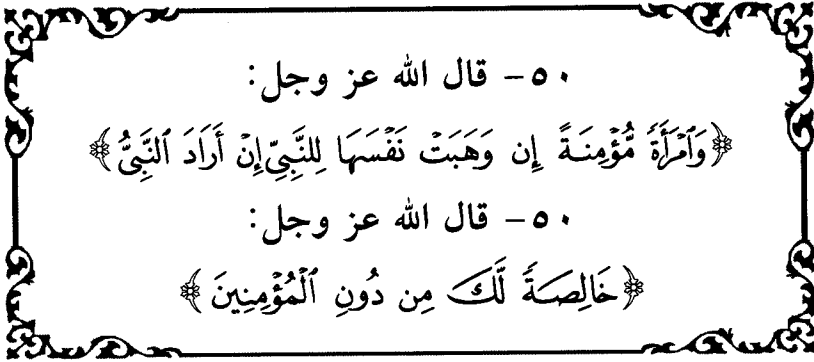 ٥٠- قال الله عز وجل:
﴿وَٱمۡرَأَةٗ مُّؤۡمِنَةً إِن وَهَبَتۡ نَفۡسَهَا لِلنَّبِيِّ إِنۡ أَرَادَ ٱلنَّبِيُّ﴾
٥٠- قال الله عز وجل:
﴿خَالِصَةٗ لَّكَ مِن دُونِ ٱلۡمُؤۡمِنِينَ﴾